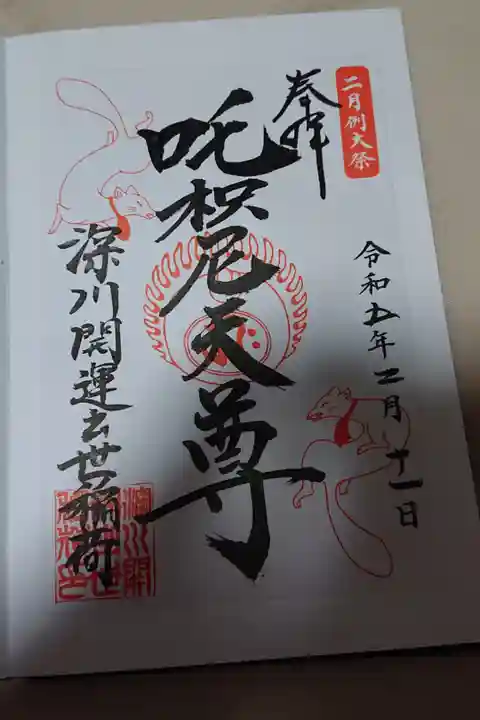 二月例大祭
奉拝
令和五年二月十一日
吒枳尼天尊
深川開運出世稲荷